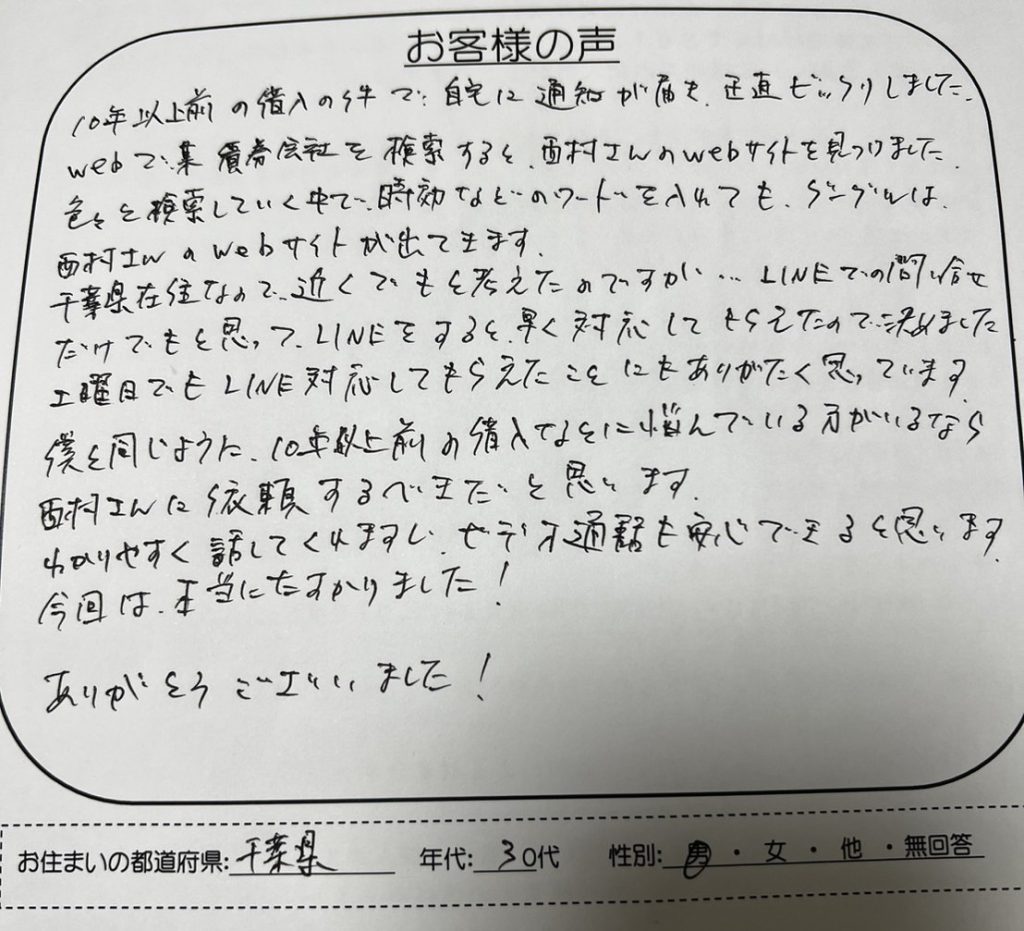 お客様の声
10年以上前の借入の件で、自宅に通知が届き、正直ビックリしました。
webで某債券会社を検索すると、西村さんのwebサイトを見つけました。
色々と検索していく中で、時効などのワードを入れても、グーグルは、
西村さんのwebサイトが出てきます。
千葉県在住なので、近くでもと考えたのですが… LINEでの問い合せ
だけでもと思って、LINEをすると、早く対応してもらえたので決めました
土曜日でもLINE対応してもらえたことにもありがたく思っています。
僕と同じように、10年以上前の借入などに悩んでいる方がいるなら
西村さんに依頼するべきだと思います。
わかりやすく話してくれますし、ビデオ通話も安心できると思います。
今回は、本当にたすかりました!
ありがとうございました!
お住まいの都道府県:千葉県 年代: 30代 性別: 男・女・他・無回答